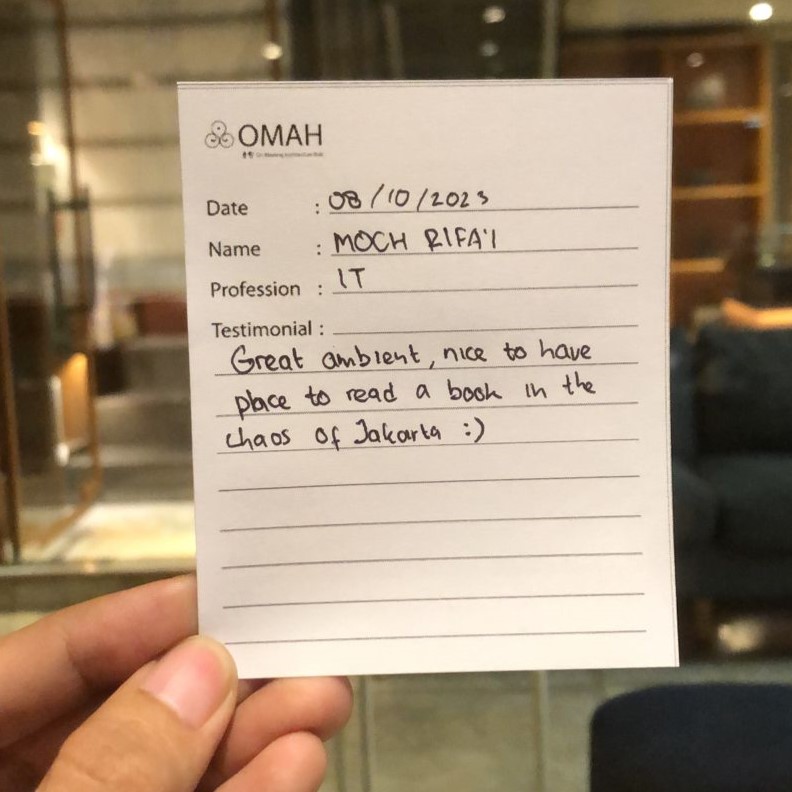 OMAH
Date : 08/10/2023
Name : MOCH RIFA'I
Profession : IT
Testimonial :
Great ambient, nice to have
place to read a book in the
chaos of Jakarta :)